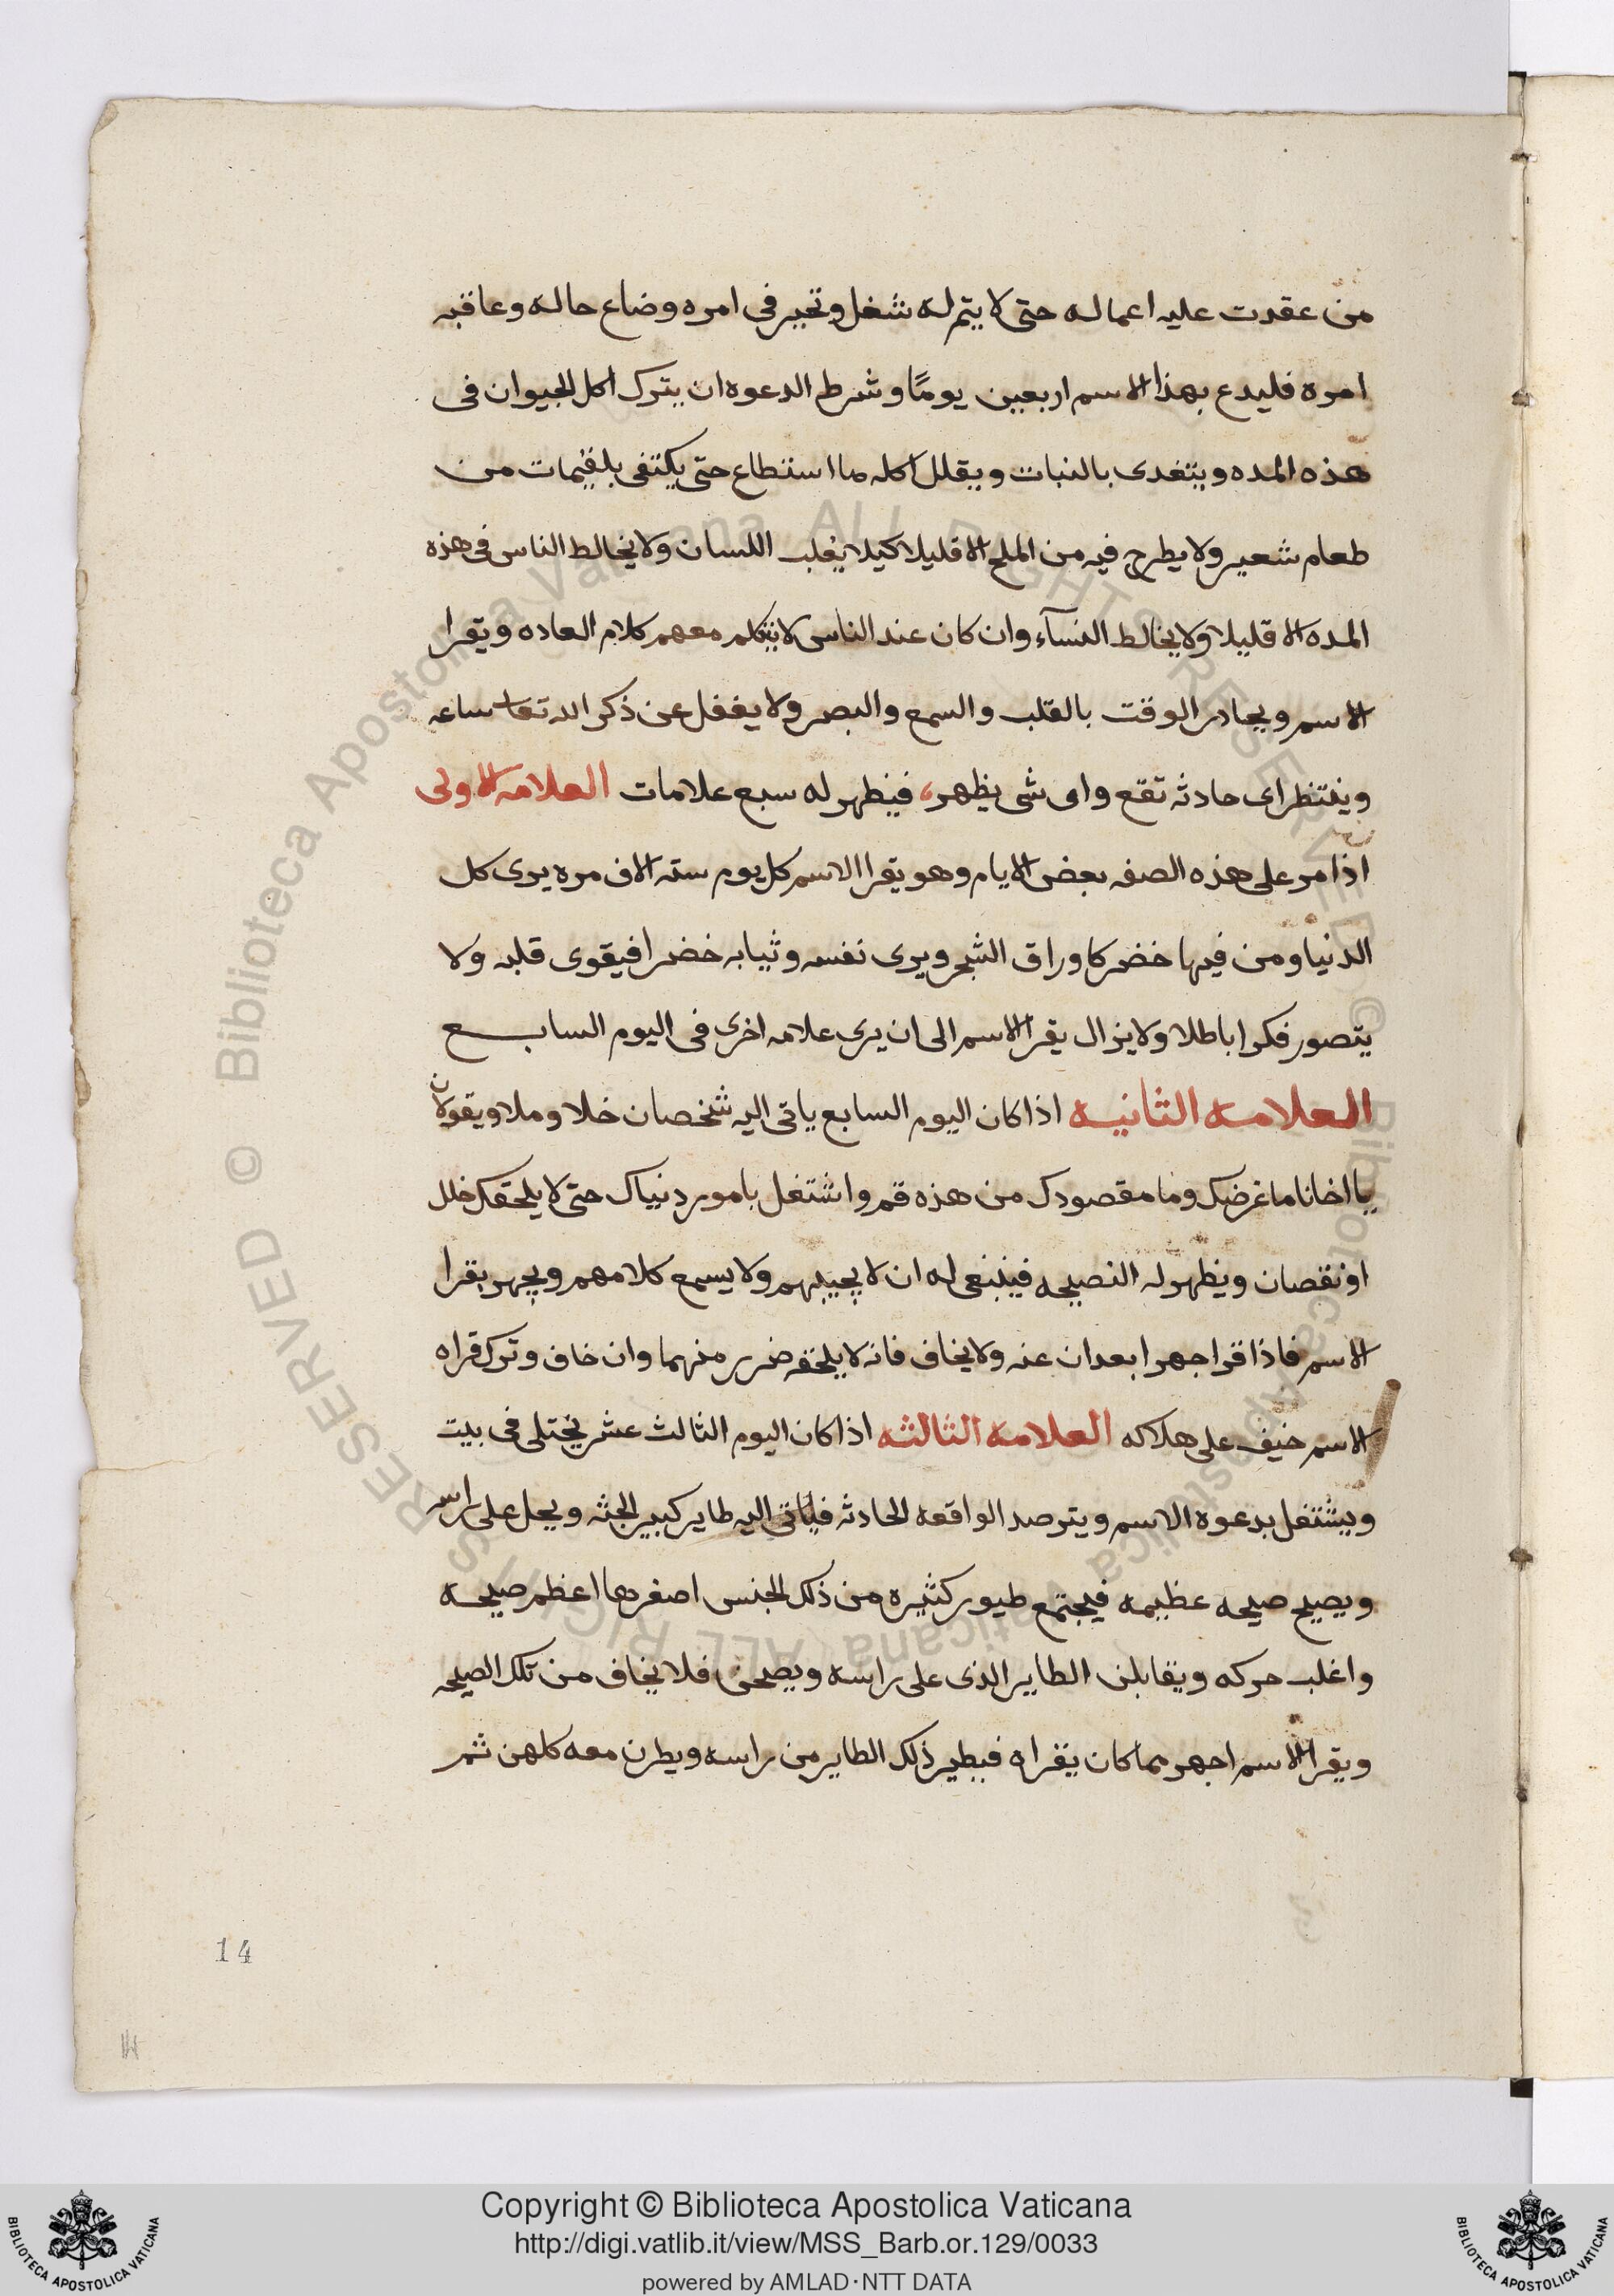 من عقدت عليه اعماله حتى لا يتم له شغل وتحير فى امره وضاع حاله وعاقبه
امره فليدع بهذا الاسم اربعين يومًا وشرط الدعوه ان يترك اكل الحيوان فى
هذه المده ويتغدى بالنبات ويقلل اكله ما استطاع حتى يكتفى بلقيمات من
طعام شعير ولا يطرح فيه من الملح الا قليلا كيلا يغلب اللسان ولا يخالط الناس فى هذه
المده الا قليلا ولا يخالط النسآء وان كان عند الناس لا يتكلم معهم كلام العاده ويقرا
الاسم ويحادر الوقت بالقلب والسمع والبصر ولا يغفل عن ذكر الله تعا ساعه
وينتظر اى حادثه تقع واى شى يظهر، فيظهر له سبع علامات العلامه الاولى
اذا مر على هذه الصفه بعض الايام وهو يقرا الاسم كل يوم سته الاف مره يرى كل
الدنيا ومن فيها خضر كاوراق الشجر ويرى نفسه وثيابه خضرا فيقوى قلبه ولا
يتصور فكرا باطلا ولا يزال يقرا الاسم الى ان يرى علامه اخرى فى اليوم السابع
العلامه الثانيه اذا كان اليوم السابع ياتى اليه شخصان خلا وملا ويقولان
يا اخانا ما غرضك وما مقصودك من هذه قم واشتغل بامور دنياك حتى لا يلحقك خلل
او نقصان ويظهر له النصيحه فينبغى له ان لا يجيبهم ولا يسمع كلامهم ويجهر بقرا
الاسم فاذا قرا جهرا بعدان عنه ولا يخاف فانه لا يلحقه ضرر منهما وان خاف وترك قراه
الاسم خيف على هلاكه العلامه الثالثه اذا كان اليوم الثالث عشر يختلى فى بيت
ويشتغل بدعوه الاسم ويترصد الواقعه الحادثه فياتى اليه طاير كبير الجثه ويحل على راسه
ويصيح صيحه عظيمه فيجتمع طيور كثيره من ذلك الجنس اصغرها اعظم صيحه
واغلب حركه ويقابلن الطاير الذى على راسه ويصحن فلا يخاف من تلك الصيحه
ويقرا الاسم اجهر مما كان يقراه فيطير ذلك الطاير من راسه ويطرن معه كلهن ثم
14
Copyright © Biblioteca Apostolica Vaticana
http://digi.vatlib.it/view/MSS_Barb.or.129/0033
powered by AMLAD·NTT DATA
BIBLIOTECA APOSTOLICA VATICANA
BIBLIOTECA APOSTOLICA VATICANA
© Biblioteca Apostolica Vaticana ALL RIGHTS RESERVED
© Biblioteca Apostolica Vaticana ALL RIGHTS RESERVED